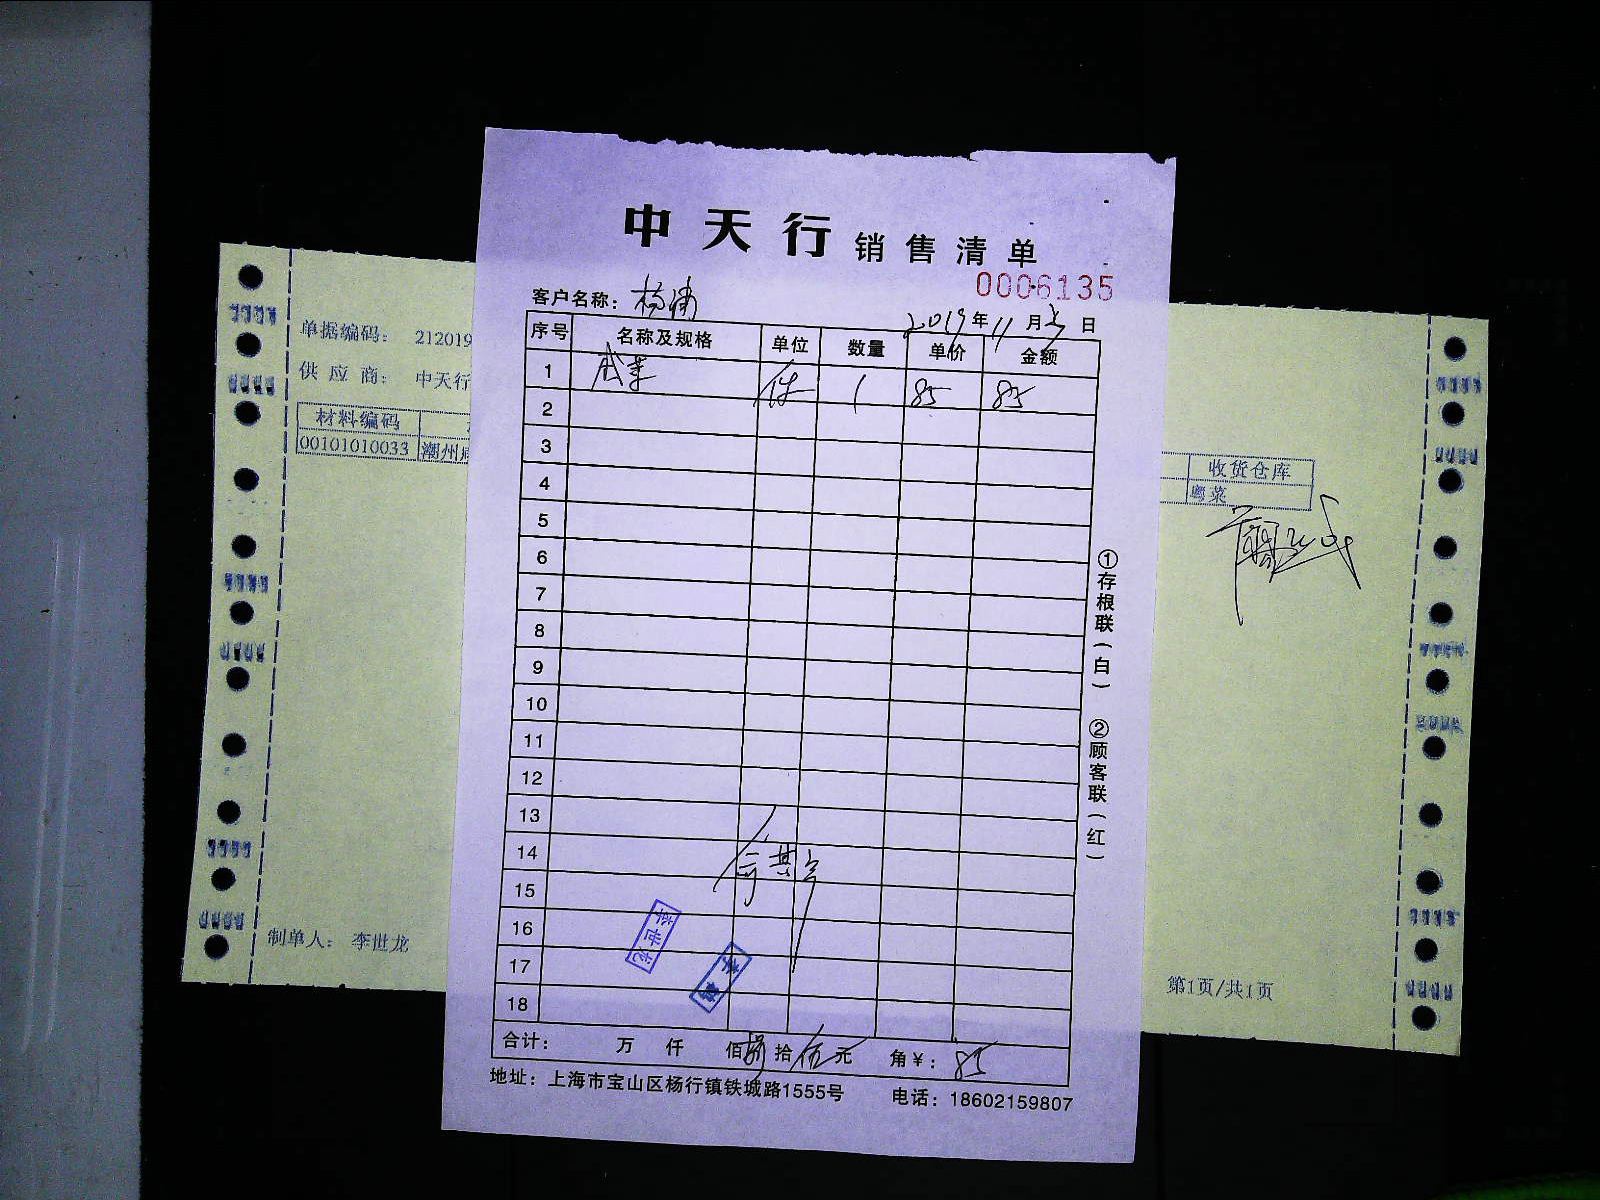 中天行 销售清单
0006135
客户名称：杨浦
2019年11月 日
序号 名称及规格 单位 数量 单价 金额
1 咸菜 件 1 85 85
2
3
4
5
6
7
8
9
10
11
12
13
14
15
16
17
18
李世龙
合计： 万 仟 佰捌拾伍元 角￥：85
地址：上海市宝山区杨行镇铁城路1555号 电话：18602159807
①存根联（白） ②顾客联（红）
单据编码： 212019
供应商： 中天行
材料编码
00101010033 潮州
收货仓库
粤菜
制单人： 李世龙
第1页/共1页